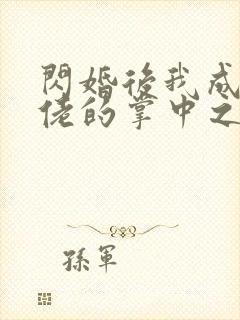 閃婚後我成
佬的掌中之
孫軍